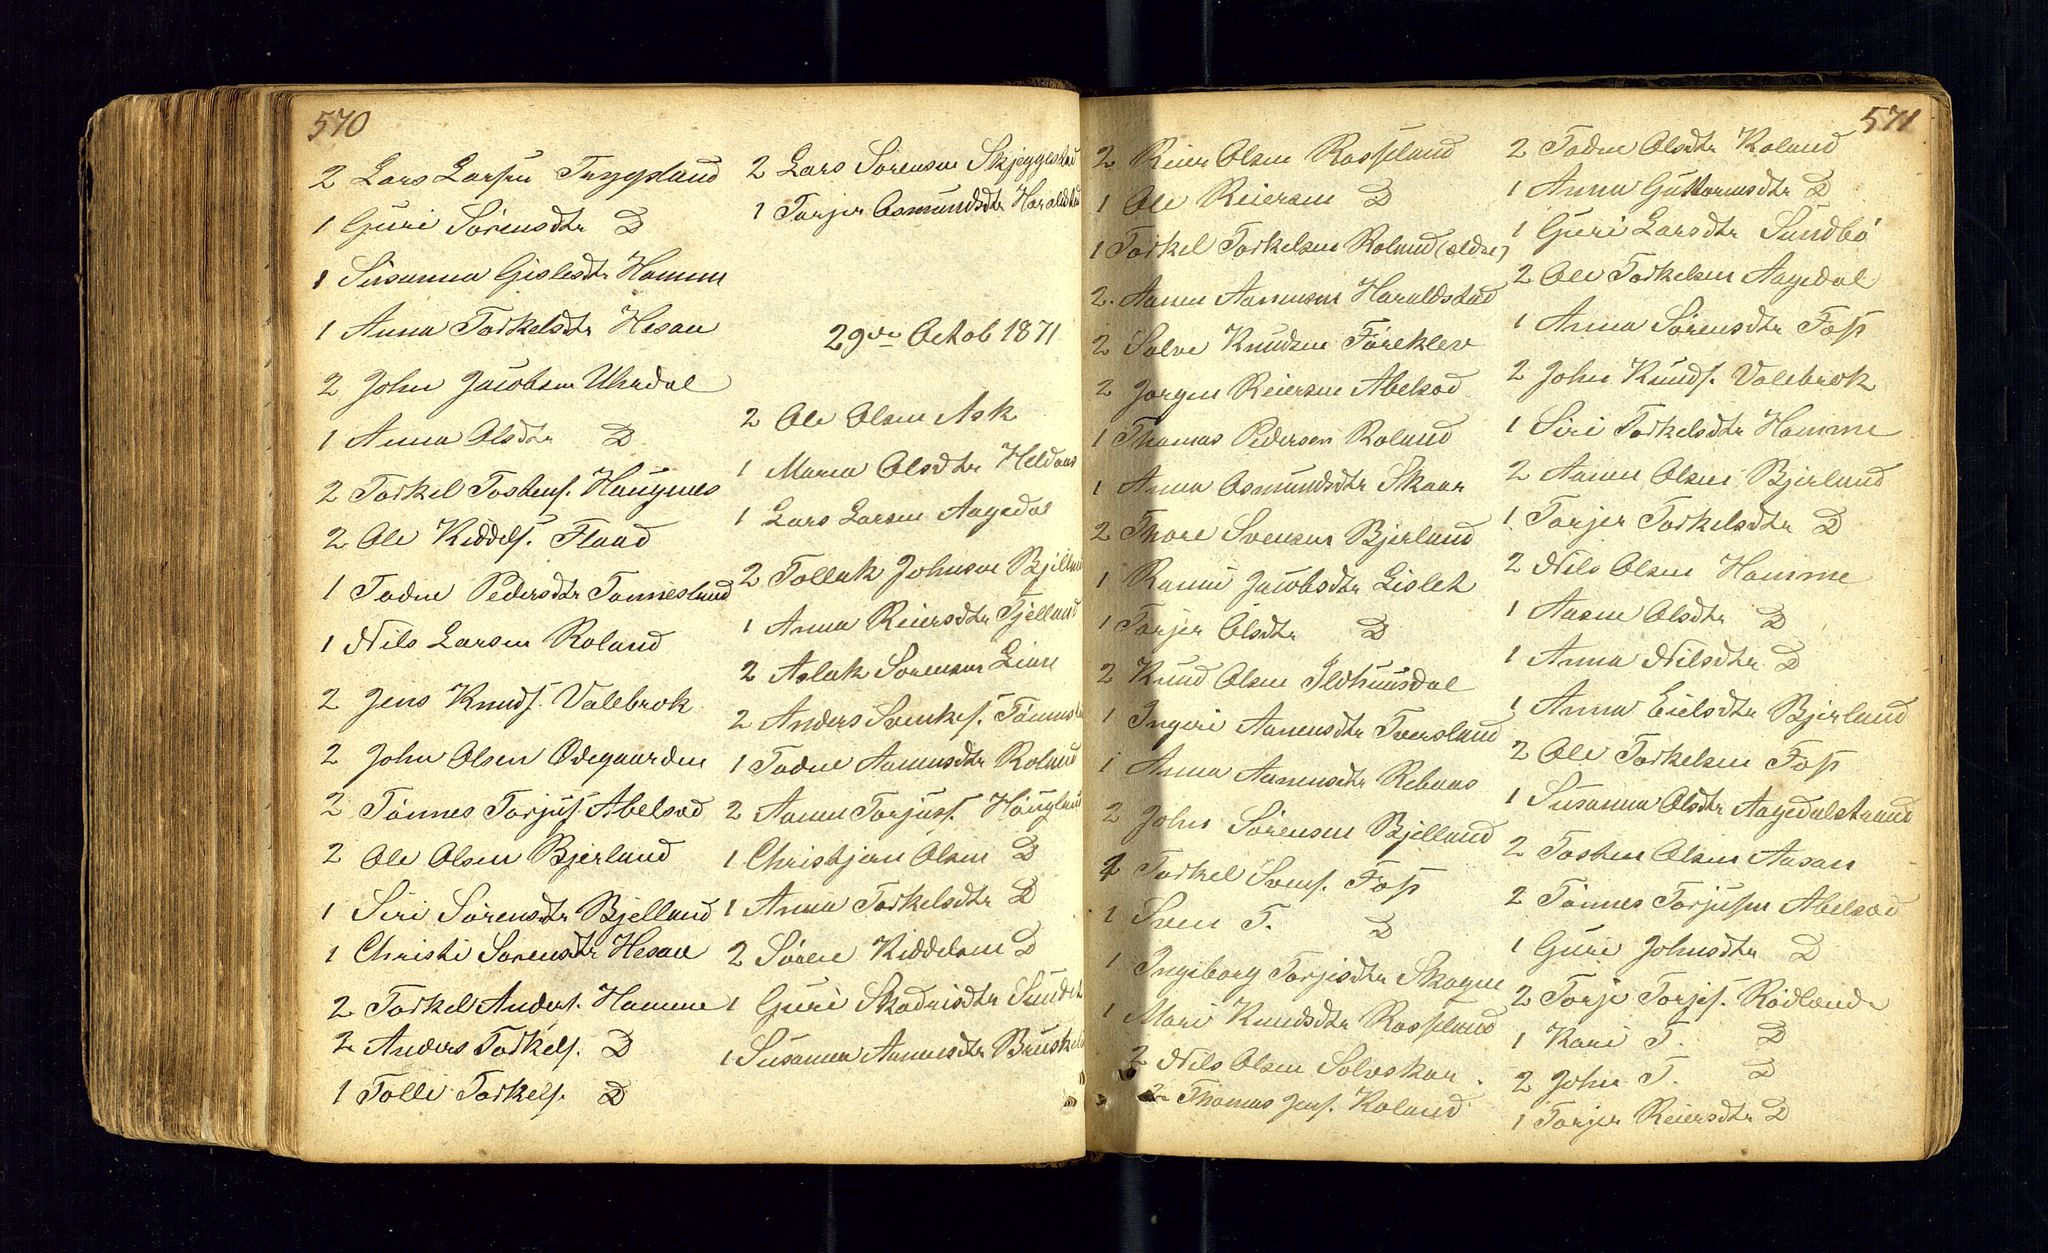 570
2 Lars Larsen Trygsland
1 Guri Sörensdtr D
1 Susanna Gislesdtr Homme
1 Anna Torkelsdtr Hesaa
2 John Jacobsen Uhrdal
1 Anna Olsdtr D
2 Torkel Tostens. Haugnes
2 Ole Kiddels. Flaad
1 Todne Pedersdtr Tonnesland
1 Nils Larsen Roland
2 Jens Knuds. Valebrok
2 John Olsen Ødegaarden
2 Tönnes Torjus. Abelsæd
2 Ole Olsen Bjerland
1 Siri Sörensdtr Bjelland
1 Christi Sörensdtr Hesaa
2 Torkel Anders. Homme
2 Anders Torkels. D
1 Tolli Torkels. D
2 Lars Sörensen Skjeggestad
1 Torjer Osmundsdtr Haraldstad
29de Octob 1871
2 Ole Olsen Ask
1 Maren Olsdtr Heldaas
1 Lars Larsen Aagedal
2 Tollak Johnsen Bjelland
1 Anna Reiersdtr Fjelland
2 Aslak Sörensen Liene
2 Anders Svenkes. Tönnesland
1 Todne Aanensdtr Roland
2 Aanen Torjuss. Höugland
1 Christjern Olsen D
1 Anna Torkelsdtr D
2 Sören Kiddelsen D
1 Guri Skadrisdtr
1 Susanna Aanensdtr
571
2 Reier Olsen Rosseland
1 Ole Reiersen D
1 Torkel Torkelsen Roland (ældre)
2. Aanen Aanensen Haraldstad
2 Solve Knudsen Föreklev
2 Jorgen Reiersen Abelsæd
1 Thomas Pedersen Roland
1 Anna Osmundsdtr Skaar
2 Thore Svensen Bjerland
1 Rannei Jacobsdtr Lislet
1 Torjer Olsdtr D
2 Knud Olsen Ildhuusdal
1 Ingeri Aanensdtr Tversland
1 Anna Aanensdtr Rebaas
2 John Sörensen Bjelland
2 Torkel Svens. Foss
1 Sven T. D
1 Ingeborg Torjisdtr Skogen
1 Mari Knudsdtr Rosseland
2 Nils Olsen Solvskar
2 Thomas Jens. Roland
2 Todne Olsdtr Roland
1 Anna Guttormsdtr D
1 Guri Larsdtr Sundbö
2 Ole Torkelsen Aagedal
1 Anna Sörensdtr Foss
2 John Knuds. Valebrok
1 Siri Torkelsdtr Homme
2 Aanen Olsen Bjerland
1 Torjer Torkelsdtr D
2 Nils Olsen Homme
1 Aasne Olsdtr D
1 Anna Nilsdtr D
1 Anna Eielsdtr Bjerland
2 Ole Torkelsen Foss
1 Susanna Olsdtr Aagedalstrand
2 Tosten Olsen Aasan
2 Tönnes Torjusen Abelsæd
1 Guri Johnsdtr D
2 Torje Torjes. Rödland
1 Kari T. D
2 John T. D
1 Torjer Reiersdtr D